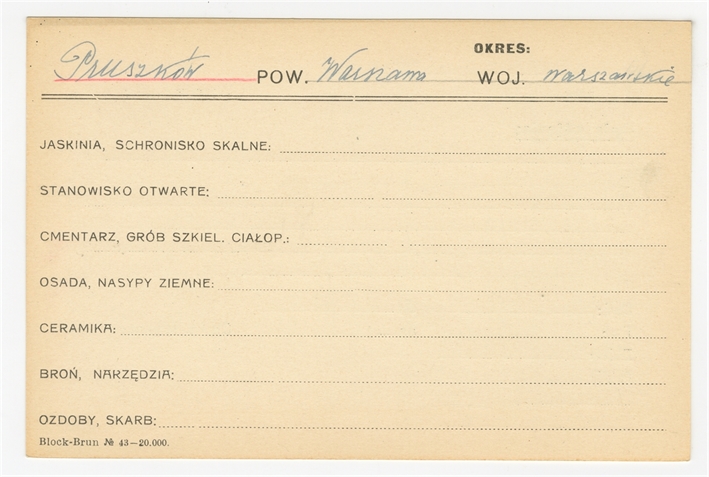 OKRES:
Pruszków POW. Warszawa WOJ. warszawskie
JASKINIA, SCHRONISKO SKALNE:
STANOWISKO OTWARTE:
CMENTARZ, GRÓB SZKIEL. CIAŁOP.:
OSADA, NASYPY ZIEMNE:
CERAMIKA:
BROŃ, NARZĘDZIA:
OZDOBY, SKARB:
Block-Brun № 43—20.000.